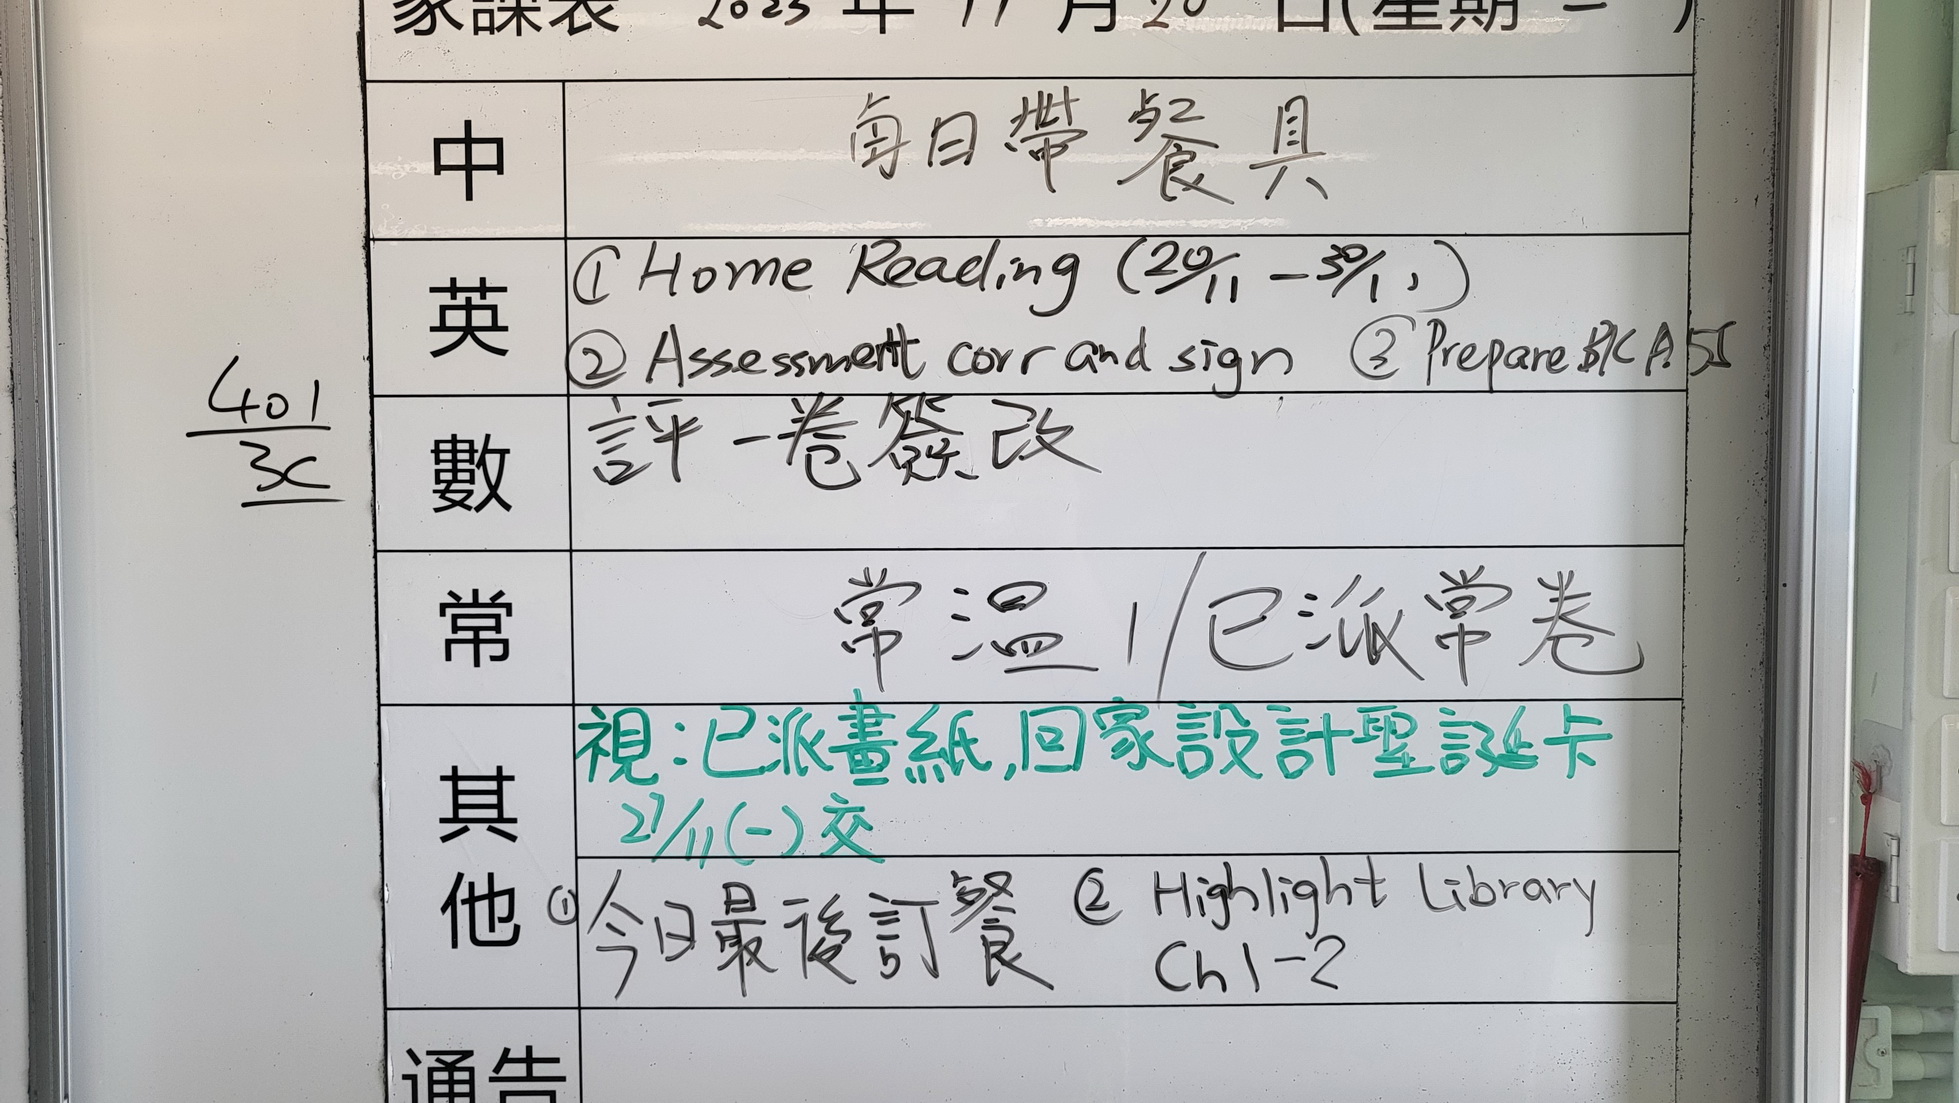 家課表 2023 年 11 月 20 日(星期 一 )
中 每日帶餐具
英 ① Home Reading (20/11 - 30/11)
② Assessment corr and sign ③ Prepare BK A
401
3C
數 評一卷簽改
常 常溫 1/已派常卷
其他
視:已派畫紙,回家設計聖誕卡
27/11(一)交
①今日最後訂餐 ② Highlight Library
Ch 1-2
通告